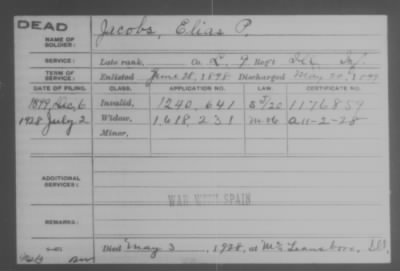 DEAD
NAME OF SOLDIER: Jacobs, Elias P.
SERVICE: Late rank, Co. L, 9 Reg't Ill. Inf.
TERM OF SERVICE: Enlisted June 28, 1898 Discharged May 20, 1899
DATE OF FILING. CLASS. APPLICATION NO. LAW. CERTIFICATE NO.
1899, Dec, 6 Invalid, 1240,641 1176859
1928 July 2 Widow, 1,618,231 a 11-2-28
Minor,
ADDITIONAL SERVICES:
WAR WITH SPAIN
REMARKS:
Died May 3, 1928, at McLeansboro, Ill.